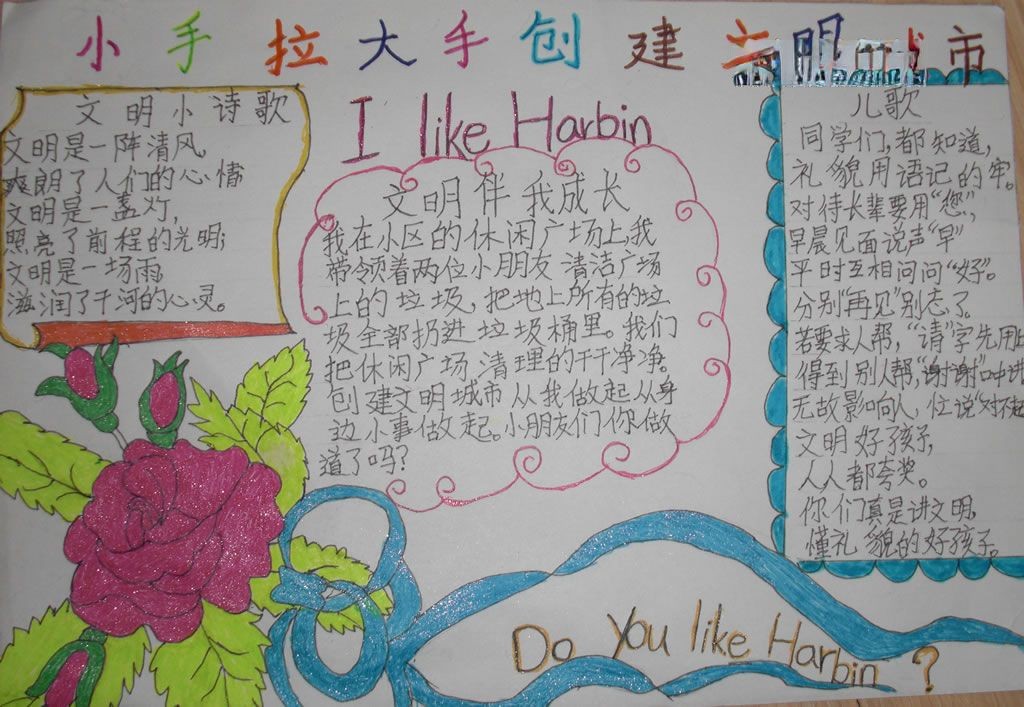 小手拉大手创建文明城市
文明小诗歌
文明是一阵清风,
爽朗了人们的心情
文明是一盏灯,
照亮了前程的光明;
文明是一场雨,
滋润了干河的心灵。
I like Harbin
文明伴我成长
我在小区的休闲广场上,我
带领着两位小朋友清洁广场
上的垃圾,把地上所有的垃
圾全部扔进垃圾桶里。我们
把休闲广场清理的干干净净。
创建文明城市从我做起从身
边小事做起。小朋友们你做
道了吗?
儿歌
同学们,都知道,
礼貌用语记的牢。
对待长辈要用“您”,
早晨见面说声“早”
平时互相问问“好”。
分别“再见”别忘了
若要求人帮,“请”字先用
得到别人帮,“谢谢”
无故影响人,忙说“对不起
文明好孩子,
人人都夸奖。
你们真是讲文明,
懂礼貌的好孩子。
Do You like Harbin ?